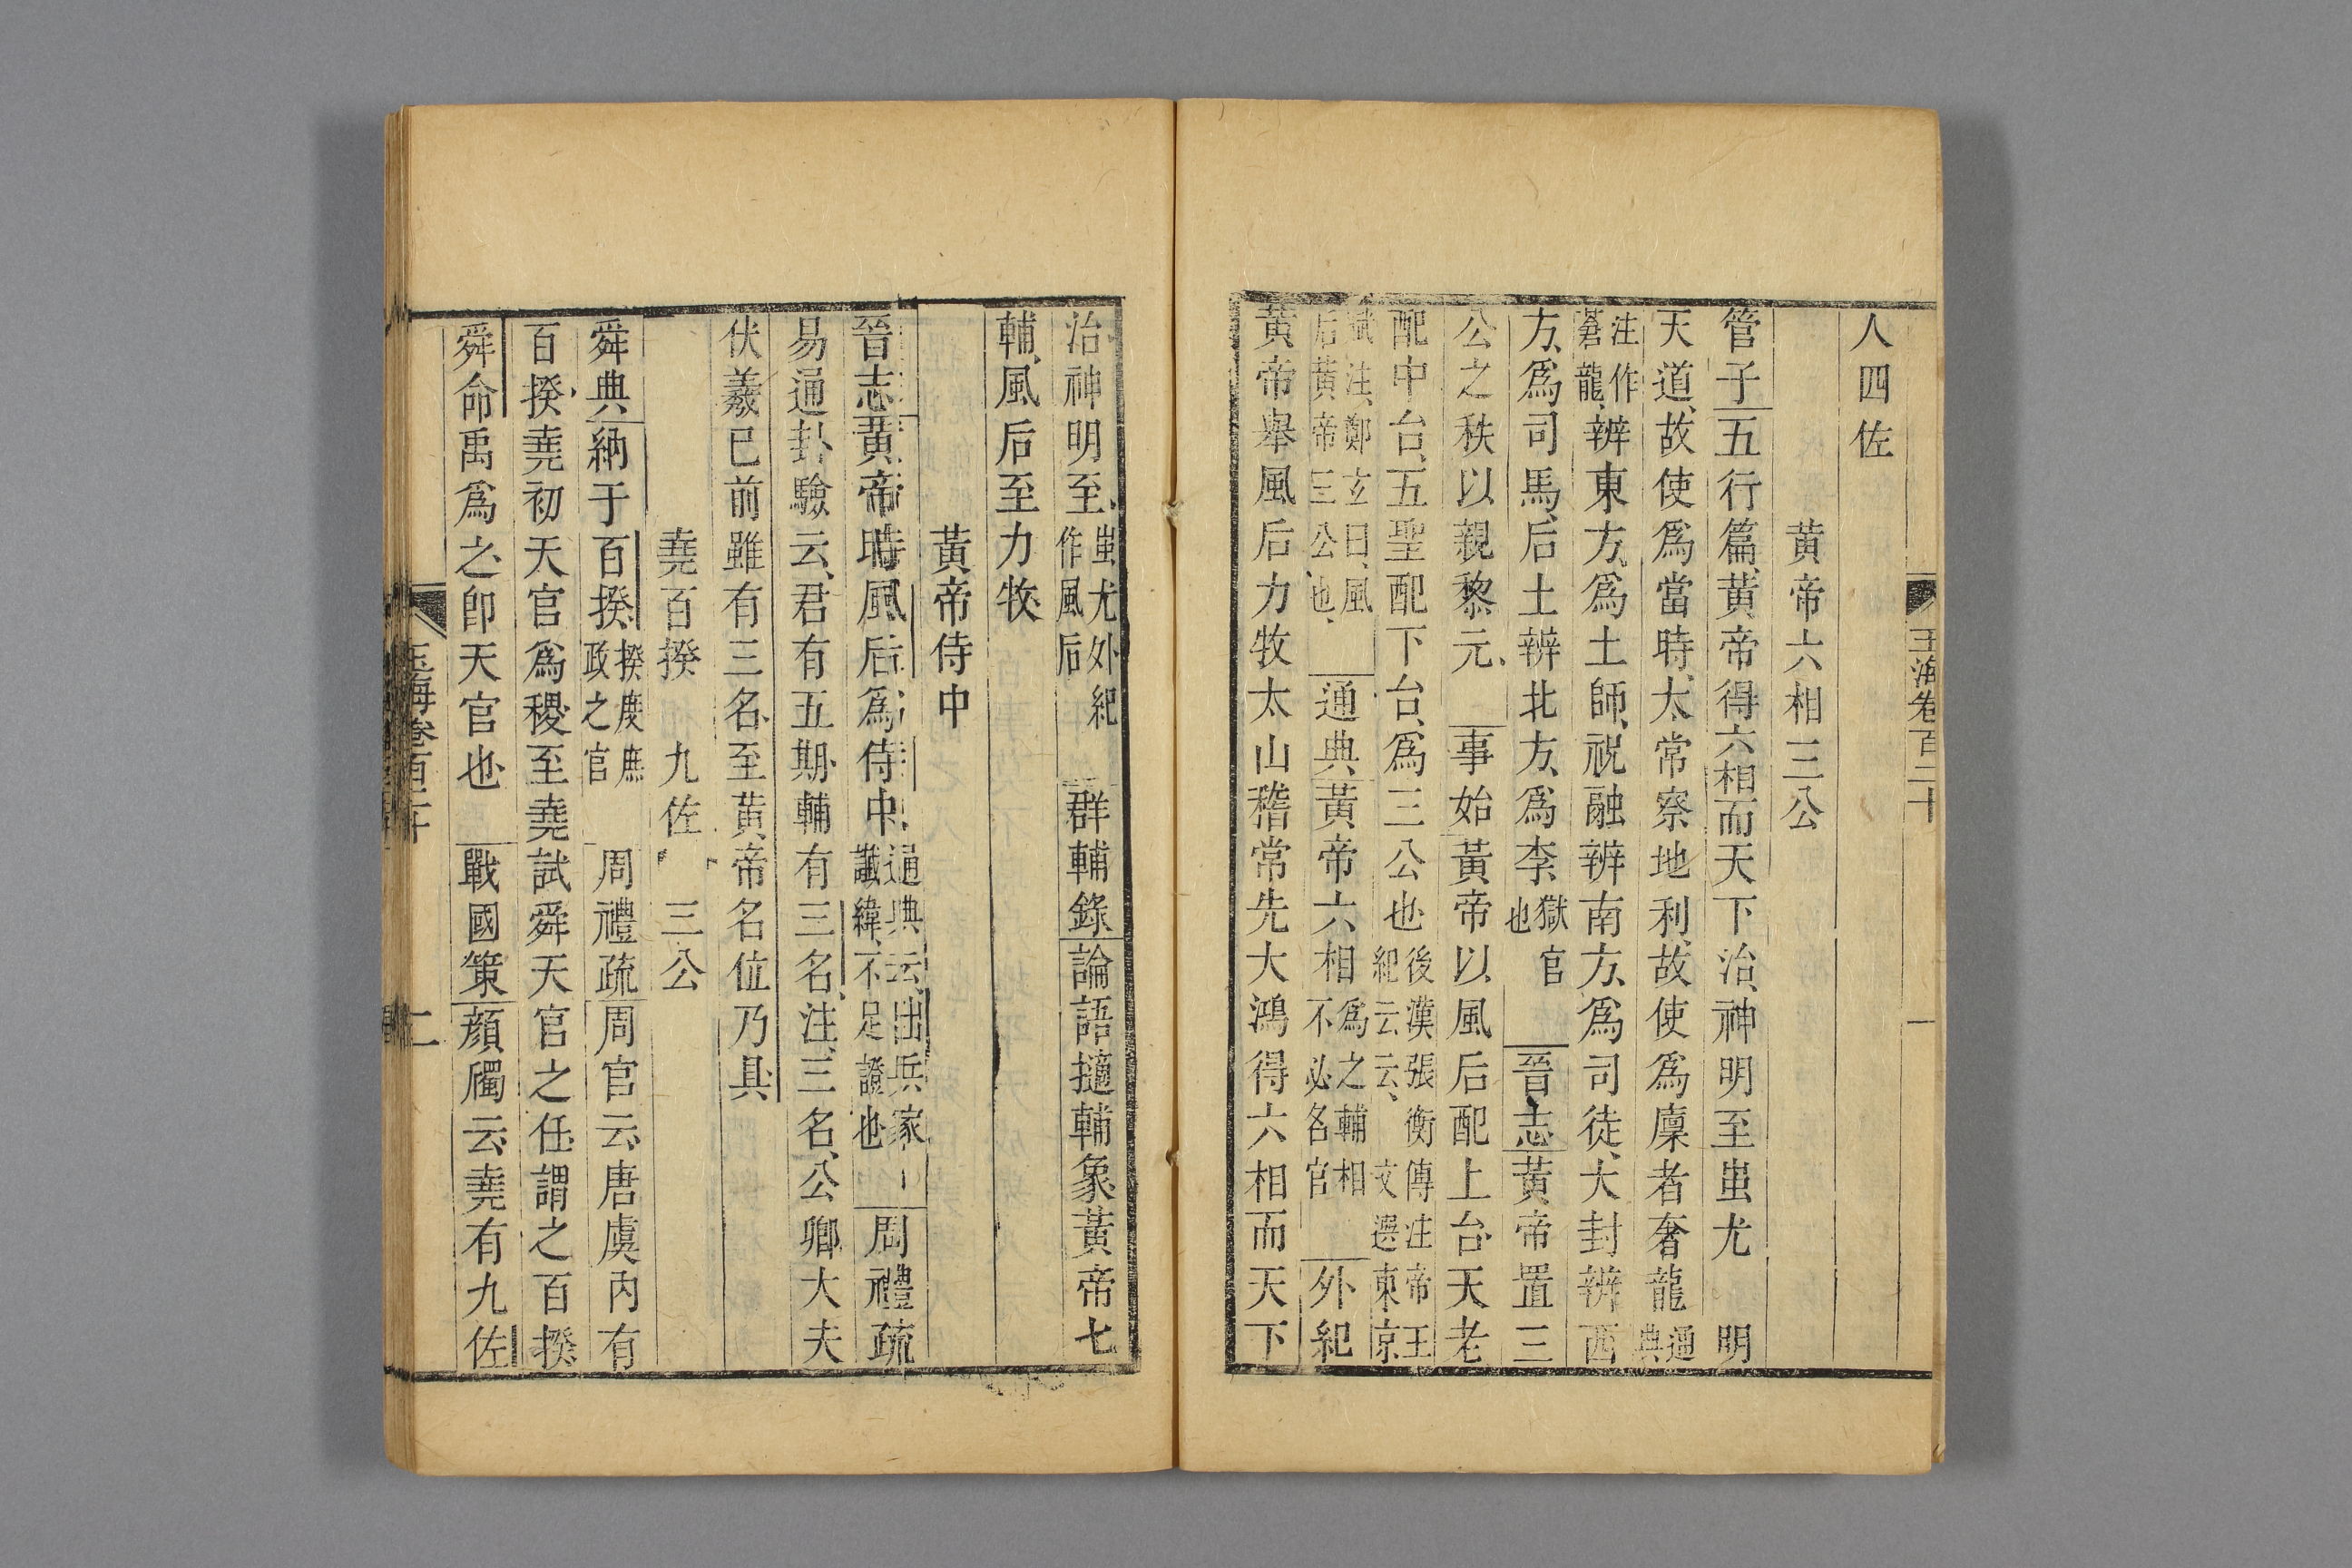 玉海卷百二十　一
人四佐
黃帝六相三公
管子五行篇黃帝得六相而天下治神明至蚩尤明
天道故使爲當時太常察地利故使爲廩者奢龍通典
注作蒼龍辨東方爲土師祝融辨南方爲司徒大封辨西
方爲司馬后土辨北方爲李獄官也　晉志黃帝置三
公之秩以親黎元　事始黃帝以風后配上台天老
配中台五聖配下台爲三公也後漢張衡傳注帝王紀云云文選東京
賦注鄭玄曰風后黃帝三公也　通典黃帝六相爲之輔相不必名官　外紀
黃帝舉風后力牧太山稽常先大鴻得六相而天下
治神明至蚩尤外紀作風后　群輔錄論語摘輔象黃帝七
輔風后至力牧
黃帝侍中
晉志黃帝時風后爲侍中通典云出兵家讖緯不足證也　周禮疏
易通卦驗云君有五期輔有三名注三名公卿大夫
伏羲已前雖有三名至黃帝名位乃具
堯百揆　九佐　三公
舜典納于百揆揆度庶政之官　周禮疏周官云唐虞內有
百揆堯初天官爲稷至堯試舜天官之任謂之百揆
舜命禹爲之卽天官也　戰國策顏斶云堯有九佐
玉海卷百二十　二